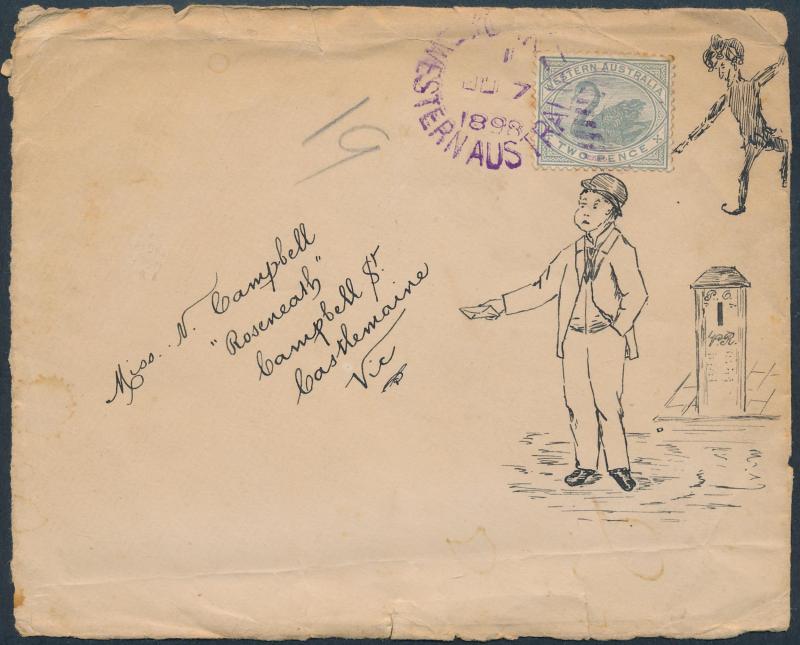 WESTERN AUSTRALIA
TWO PENCE
1
JU 7
1898
WESTERN AUSTRALIA
19
Miss. N. Campbell
"Roseneath"
Campbell St
Castlemaine
Vic
P.O.
V.R.